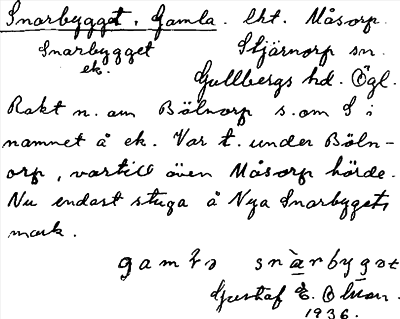 Snarbygget, Gamla. lht. Måsorp.
Snarbygget Stjärnorp sn.
ek. Gullbergs hd. Ögl.
Rakt n. om Bölnorp s. om S i
namnet å ek. Var t. under Böln-
orp, vartill även Måsorp hörde.
Nu endast stuga å Nya Snarbyggets
mark.
snàrbygət
Gustaf E. Olsson.
1936.